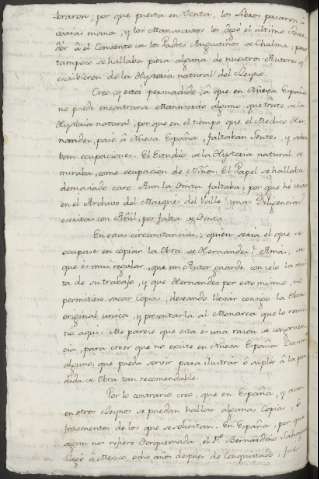 braron; por que puesta en Venta, los Libros pasaron à
varias manos, y los Manuscritos los
à el Convento de los Padres Augustinos de Chalma, pero
tampoco se hallaba pieza alguna de nuestros Autores que
escribieron de la Hystoria natural del Reyno.
Creo, y estoi persuadido à que en Nueva España
no puede encontrarse Manuscrito alguno, que trate de la
Hystoria natural, por que en el tiempo que el Medico Her-
nandez, pasó à Nueva España, faltaban
tan ocupaciones. El Estudio de la Hystoria natural se
miraba, como ocupacion de Niños. El Papel se hallaba
demasiado caro. Aun la tinta faltaba, por que hé visto
en el Archivo del Marques del Valle, una Diligencia
escrita con Añil, por falta de tinta.
En estas circunstancias, quien seria el que se
ocupase en copiar la Obra de Hernandez? Amas, de
que es mui regular, que un Autor guarde con zelo la
de su trabajo, y que Hernandez por esto mismo, no
permitiera sacar Copia, deseando llevar consigo la Obra
original unica, y presentarla al Monarca que lo
aqui. Me parece que esta es una razon de congruen-
cia, para creer que no existe en Nueva España
alguno, que pueda servir para ilustrar ó suplir à la per-
dida de Obra tan recomendable.
Por lo contrario creo, que en España, y aun
en otros Reynos se puedan hallar algunas Copias, ó
fragmentos de los que se solicitan. En España, por que
segun nos refiere Torquemada, el P. Bernardino Sahagun
llegó à Mexico, ocho años despues de Conquistado.